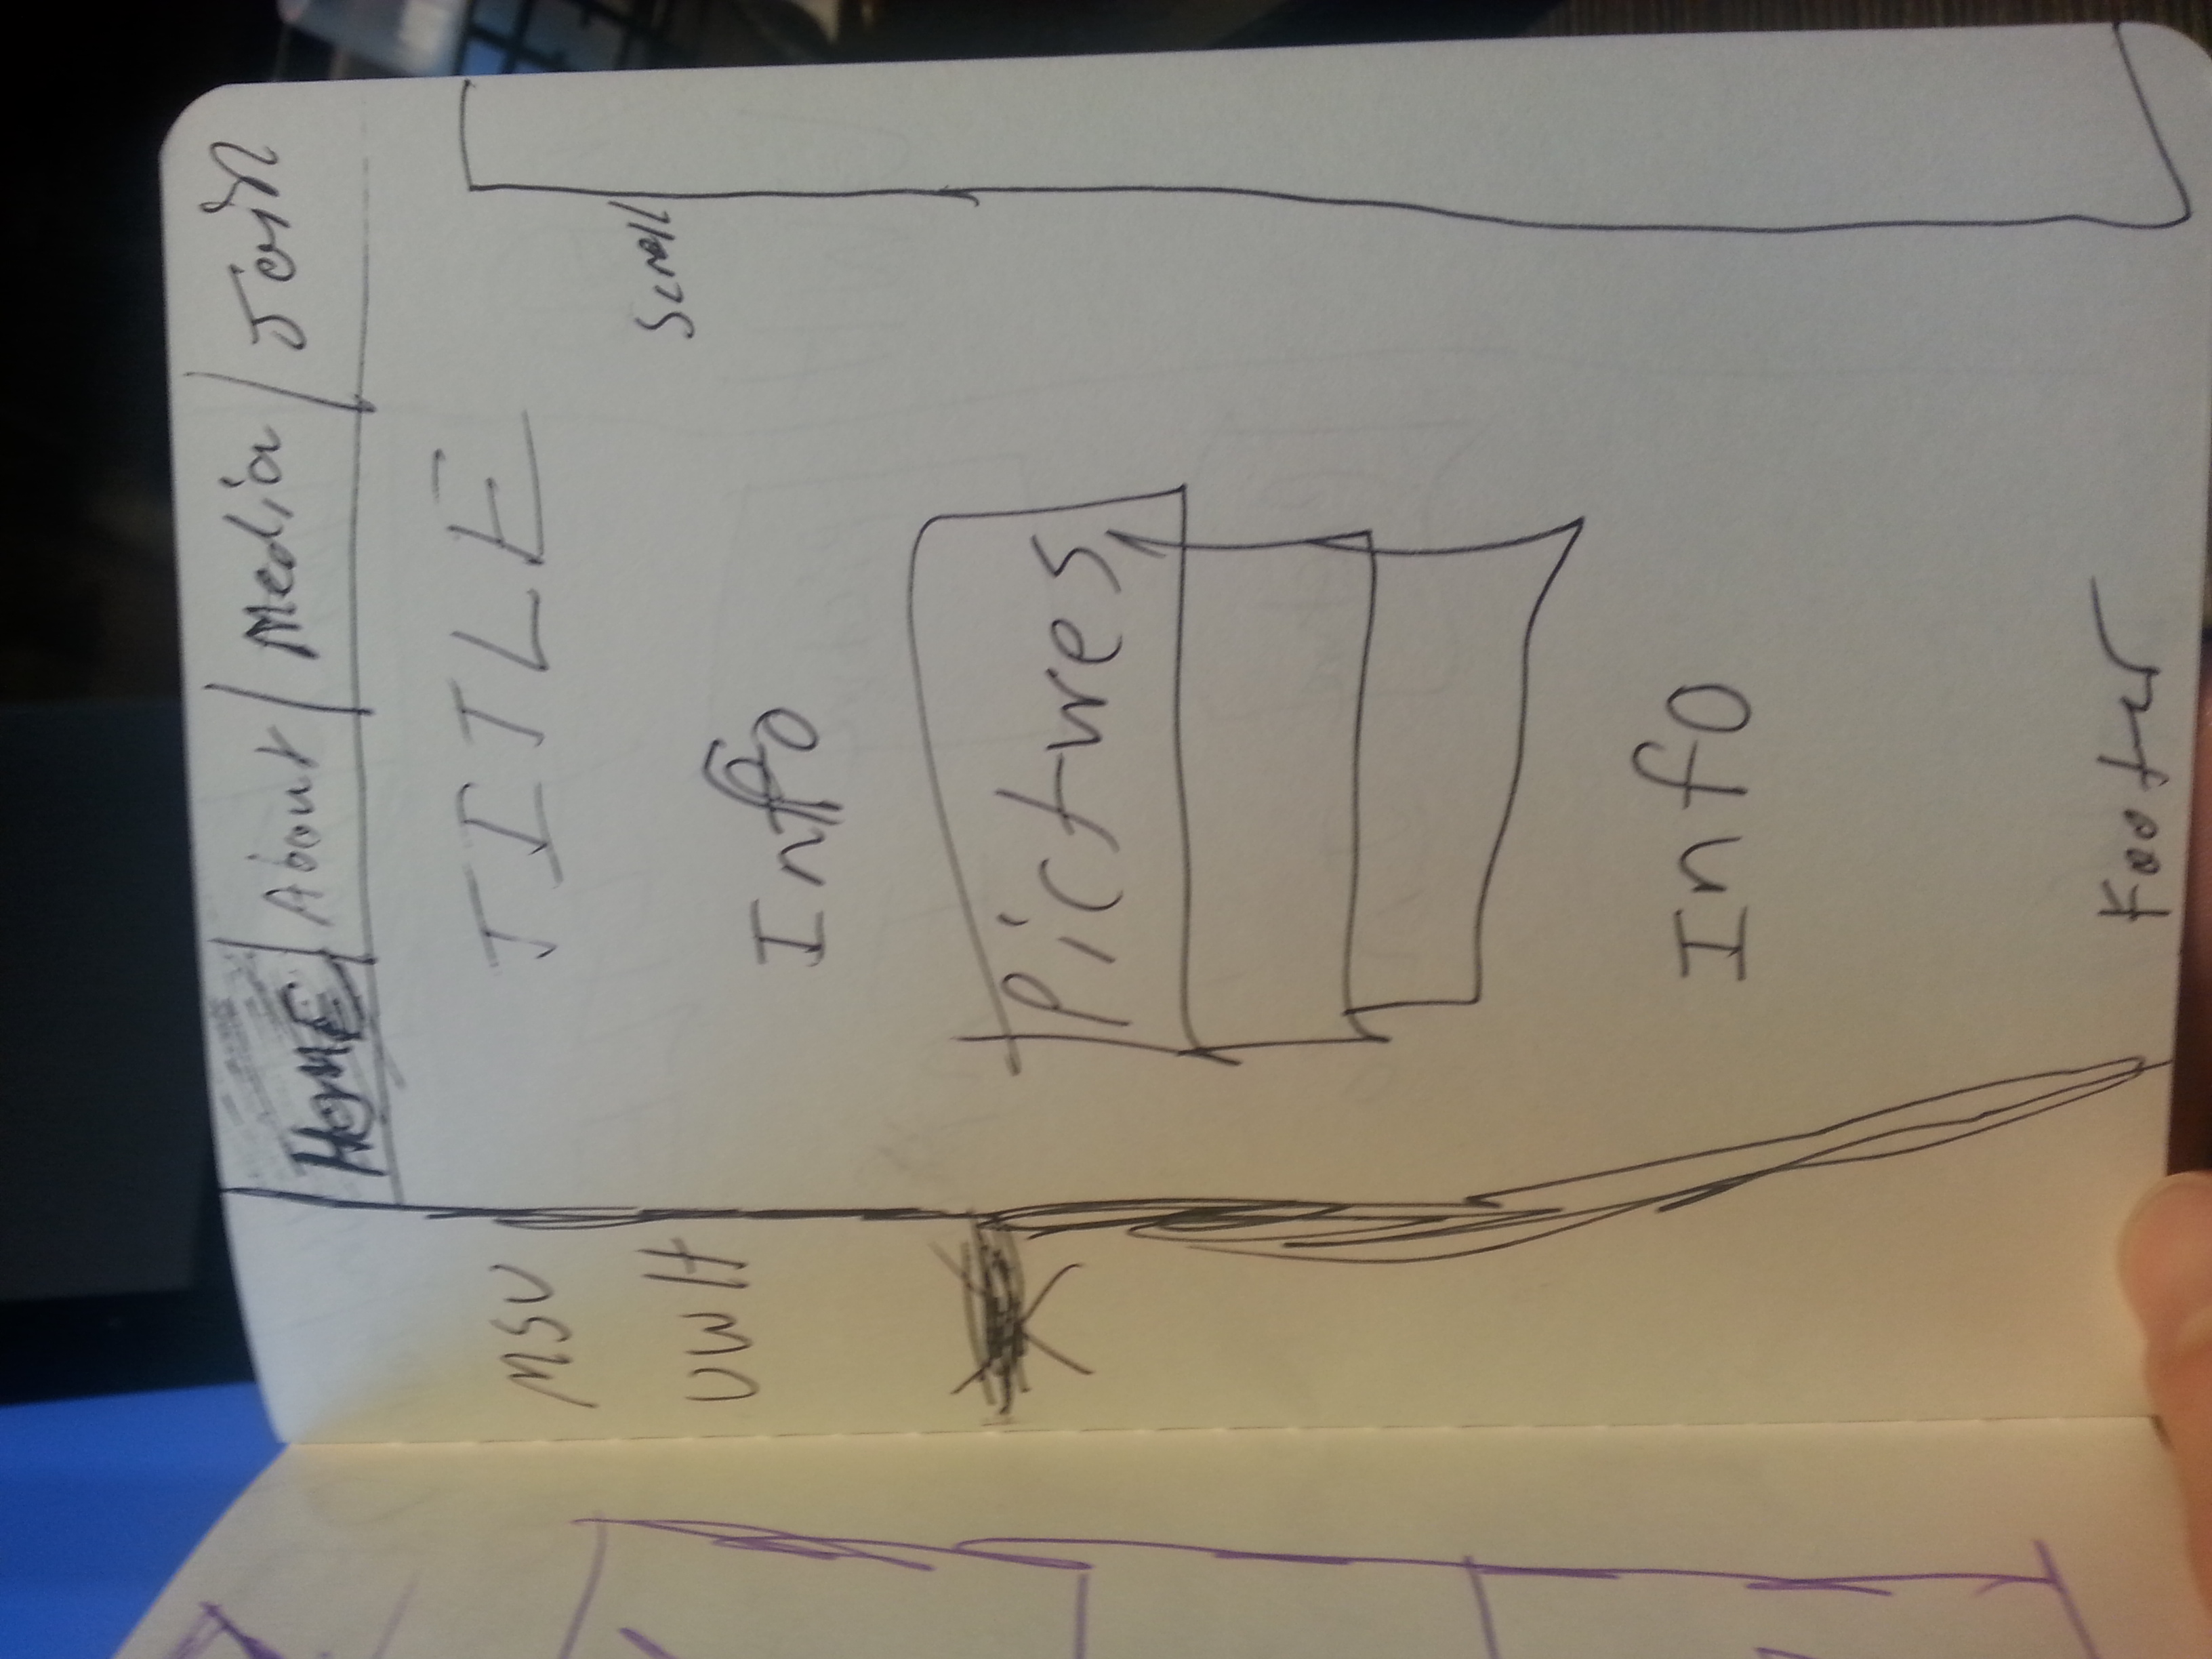 HOME About Media Join
TITLE
MSU
UWH
Scroll
Info
Pictures
Info
Footer